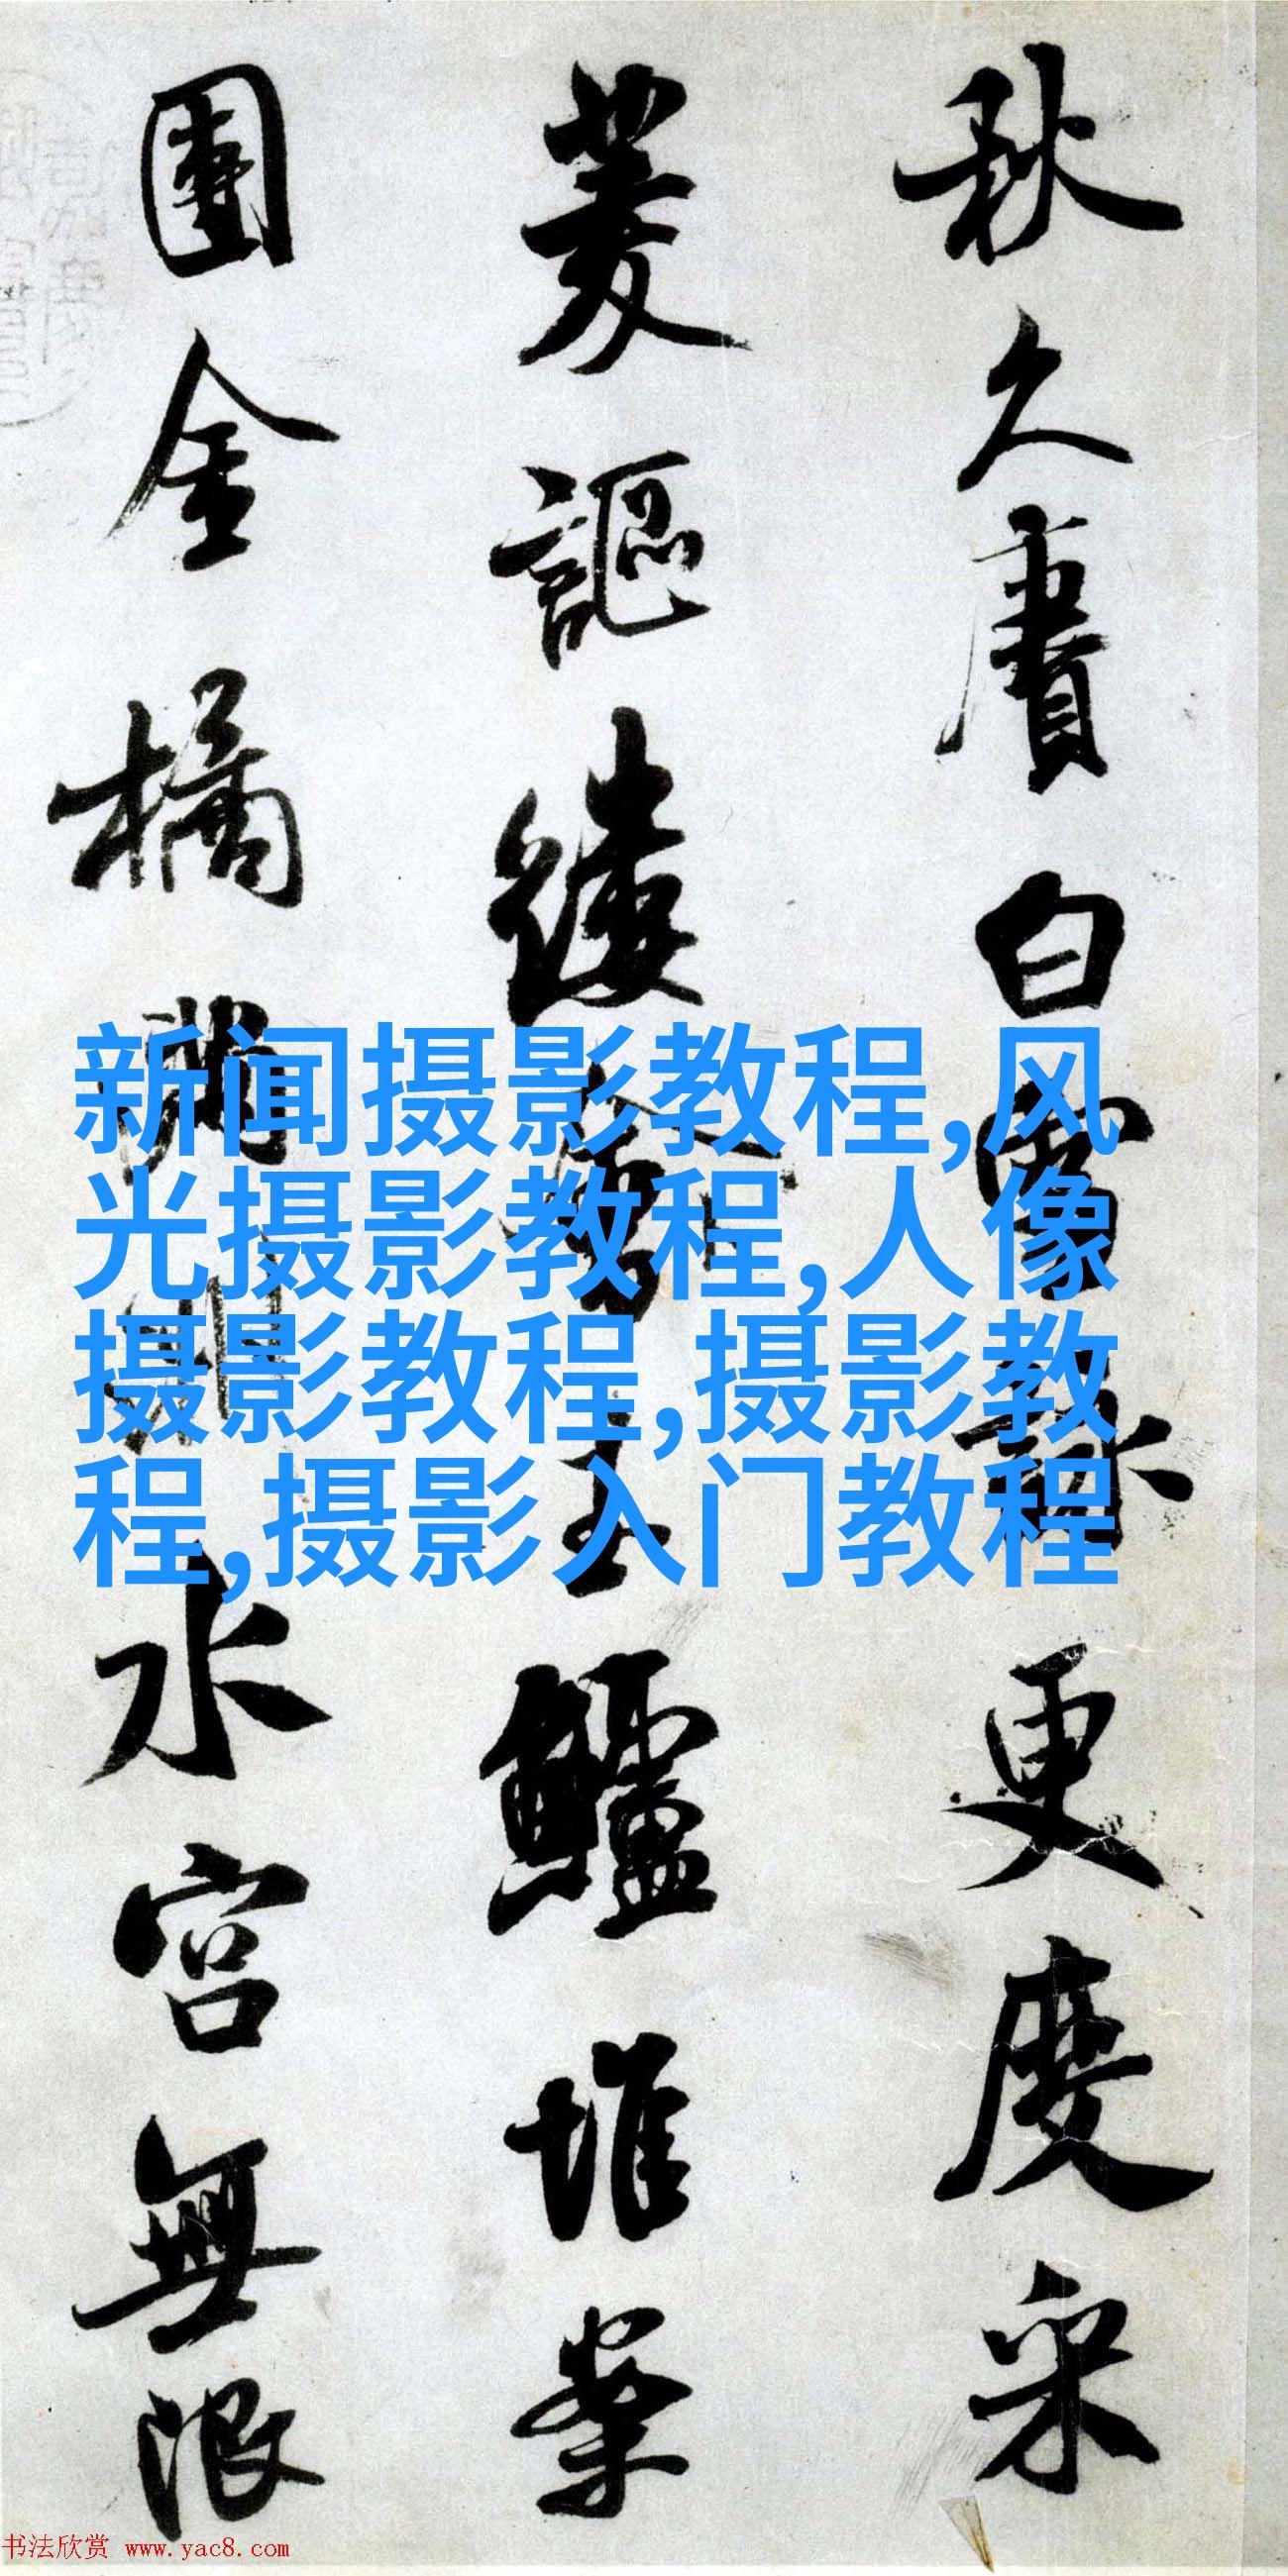 秋久賡白雪詠更度采
菱謳縷玉鱸堆案
團金橘滿洲水宮無限
新闻摄影教程,风
光摄影教程,人像
摄影教程,摄影教
程,摄影入门教程
书法欣赏 www.yac8.com